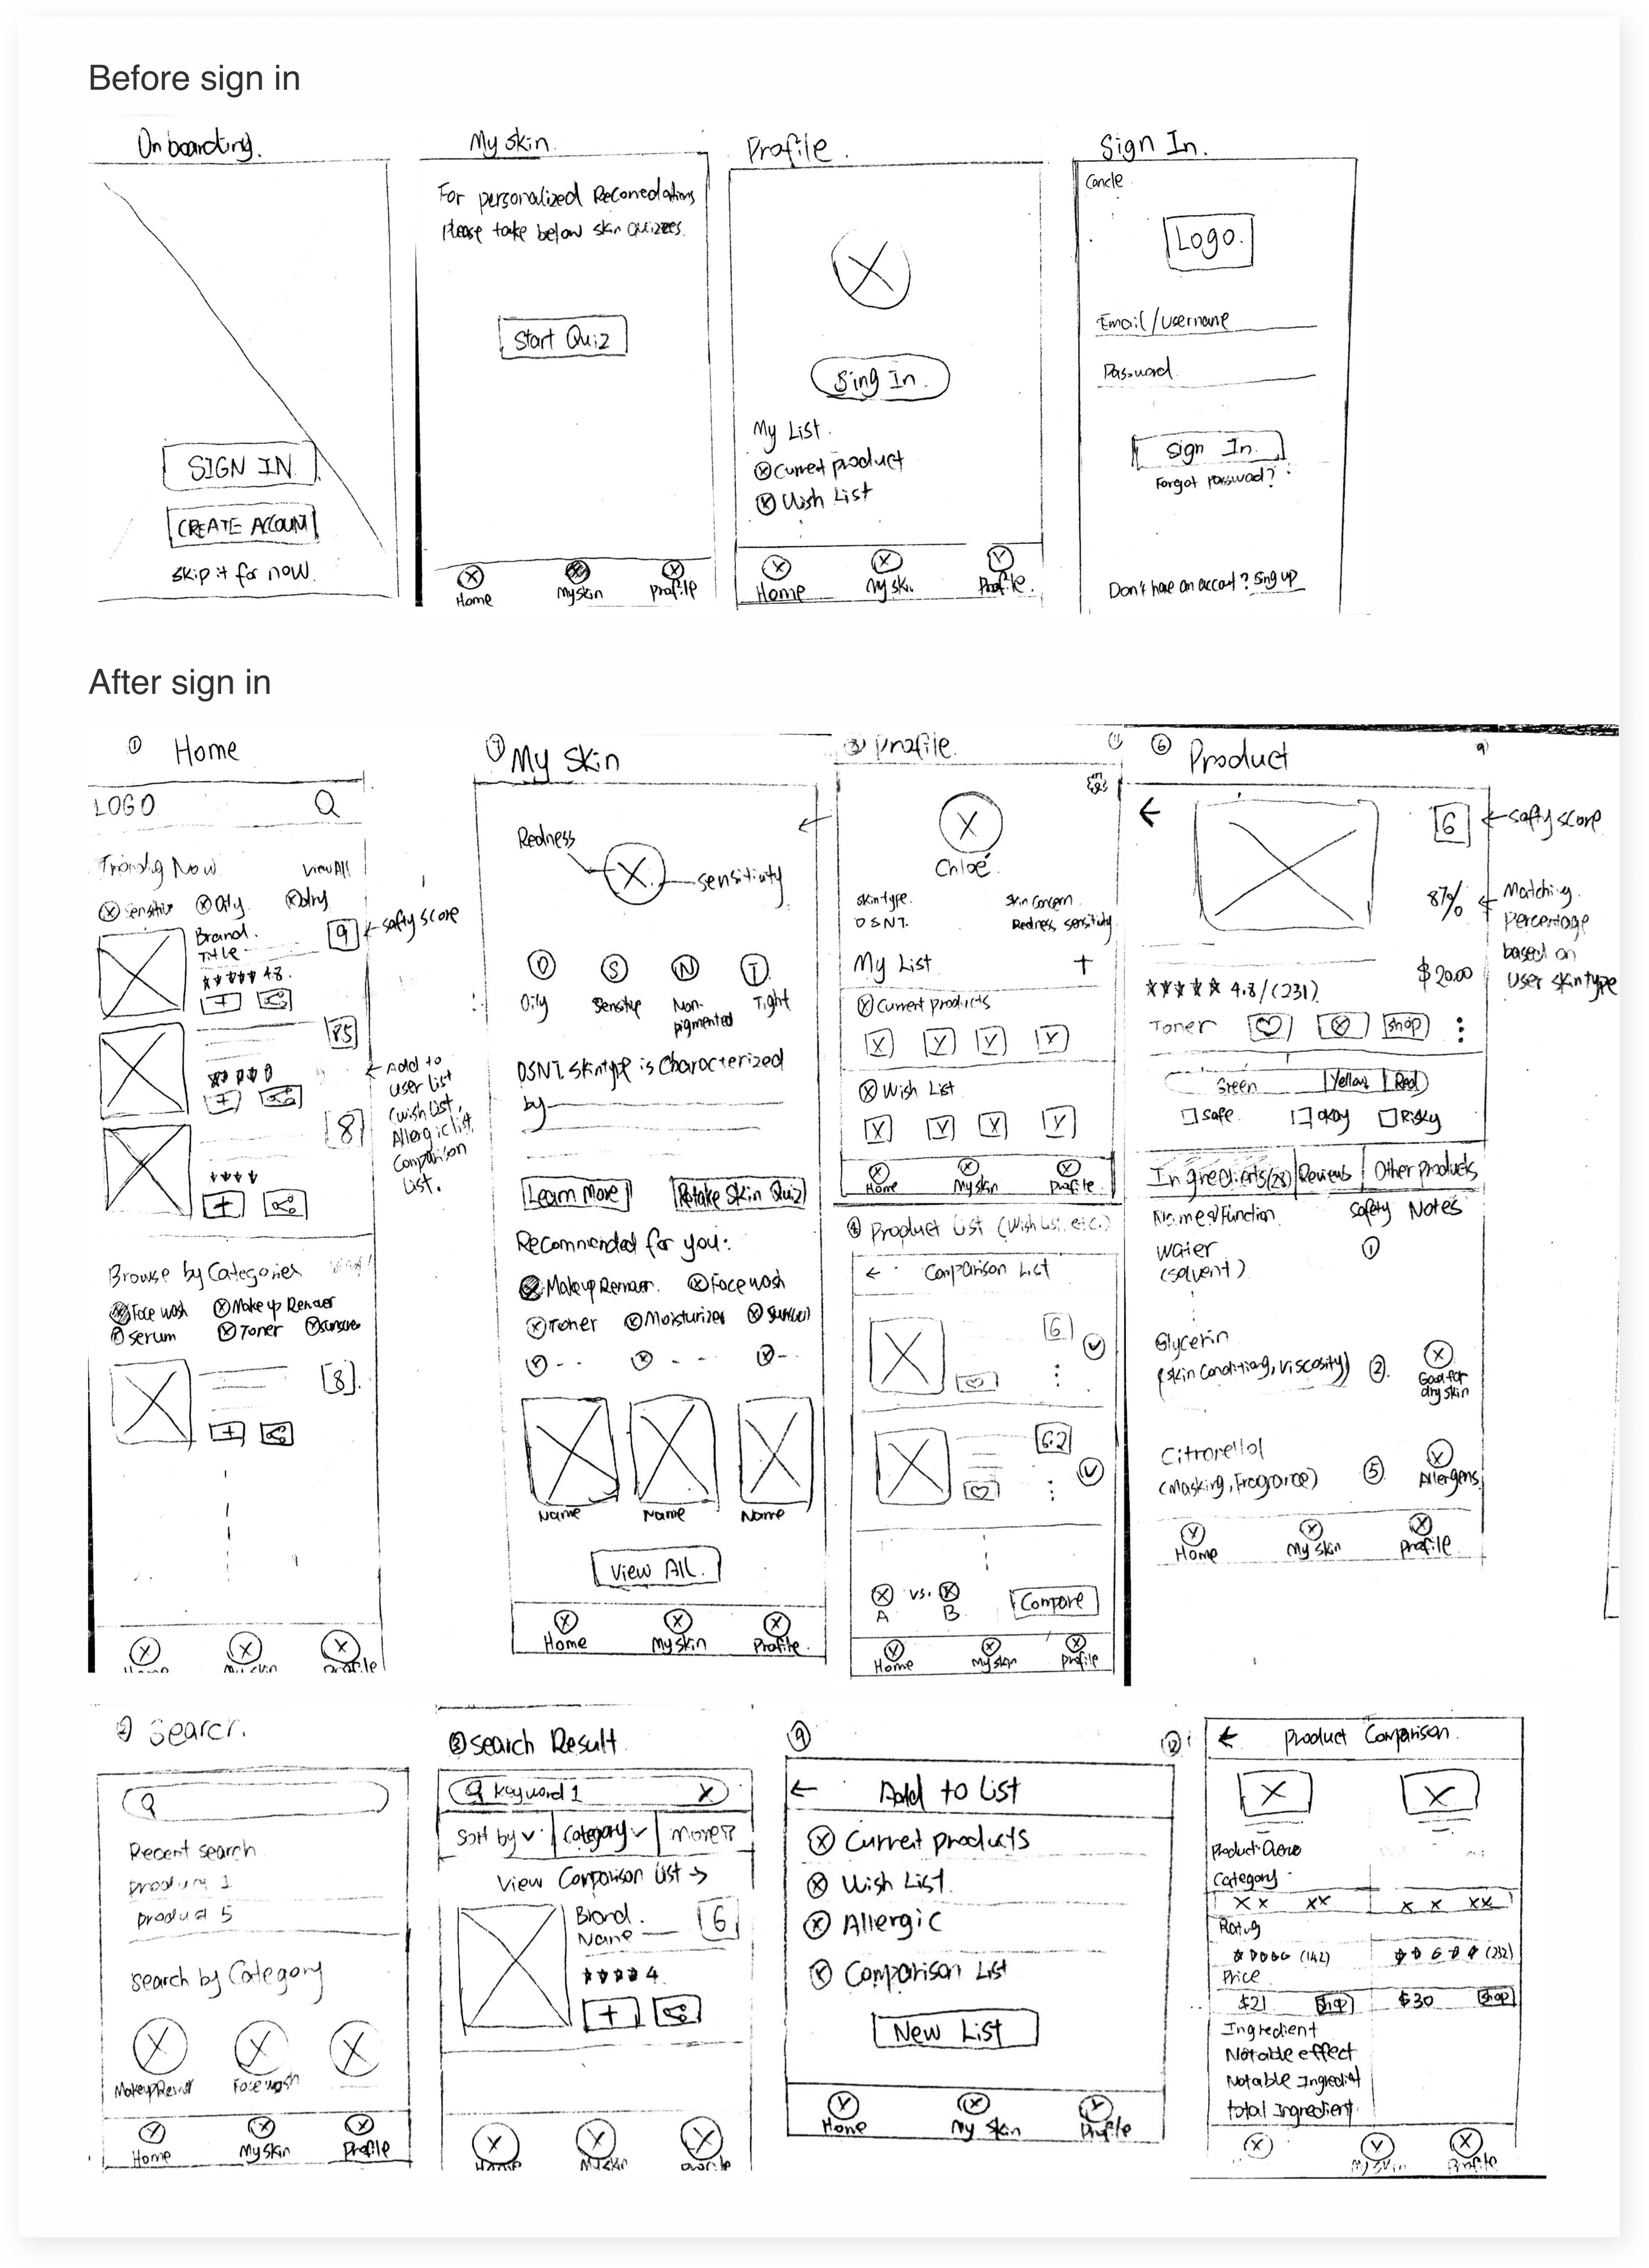 Before sign in
Onboarding.
SIGN IN
CREATE ACCOUNT
Skip it for now.
My skin.
For personalized Recomedations
Please take below skin Quizzes.
Start Quiz
Home
My skin
Profile
Profile.
Sing In.
My List.
Current product
Wish List
Home
My sk.
Profile.
Sign In.
Cancle
Logo.
Email/Username
Password
Sign In.
Forgot password?
Don't have an accout? Sing up
After sign in
① Home
LOGO
Now
View All
Oily
dry
Brand.
Title
4.8.
9
Safty score
8.5
Add to
user list
(wish list,
Allergic list,
Comparison
List.
8
Browse by Categories
Face wash
Make up
Serum
Toner
8
My Skin
Redness
Sensitivity
O
S
N
T
Oily
Sensitive
Non-
pigmented
Tight
OSNT skintype is characterized
by
Learn More
Retake Skin Quiz
Recommended for you:
Makeup
Face wash
Toner
Moisturizer
Name
Name
Name
View All.
Home
My skin
Profile.
Profile.
Chloé.
Skintype.
OSNT.
Skin Concern.
Redness, sensitivity
My List
+
Current products
Wish List
Home
My skin
Profile.
④ Product List (Wish List, etc.)
← Comparison List
6
6.2
A
vs.
B
Compare
Home
My skin
Profile
⑥ Product
←
6
Safty score
87%
Matching
percentage
based on
User skintype
$20.00
4.8/(231)
Toner
shop
Green
Yellow
Red
Safe
Okay
Risky
Ingredients(28)
Reviews
Other products
Name&/Function
Safety
Notes
Water
(Solvent)
1
Glycerin
(skin Conditiong, Viscosity)
2
Good for
dry skin
Citronellol
(Masking, Fragrance)
5
Allergens
Home
My skin
Profile.
② Search.
Recent search
product 1
product 5
Search by Category
Face wash
Home
My skin
Profile
③ Search Result
Keyword 1
X
Sort by
Category
View Comparison List →
Brand.
Name
6
4
+
Home
My skin
Profile
⑨
← Add to List
Current products
Wish List
Allergic
Comparison List
New List
Home
My skin
Profile
← Product Comparison.
Category
XX XX
X X XX
Rating
(142)
(232)
Price
$21
shop
$30
shop
Ingredient
Notable effect
Notable Ingredient
total Ingredient
My skin
Profile